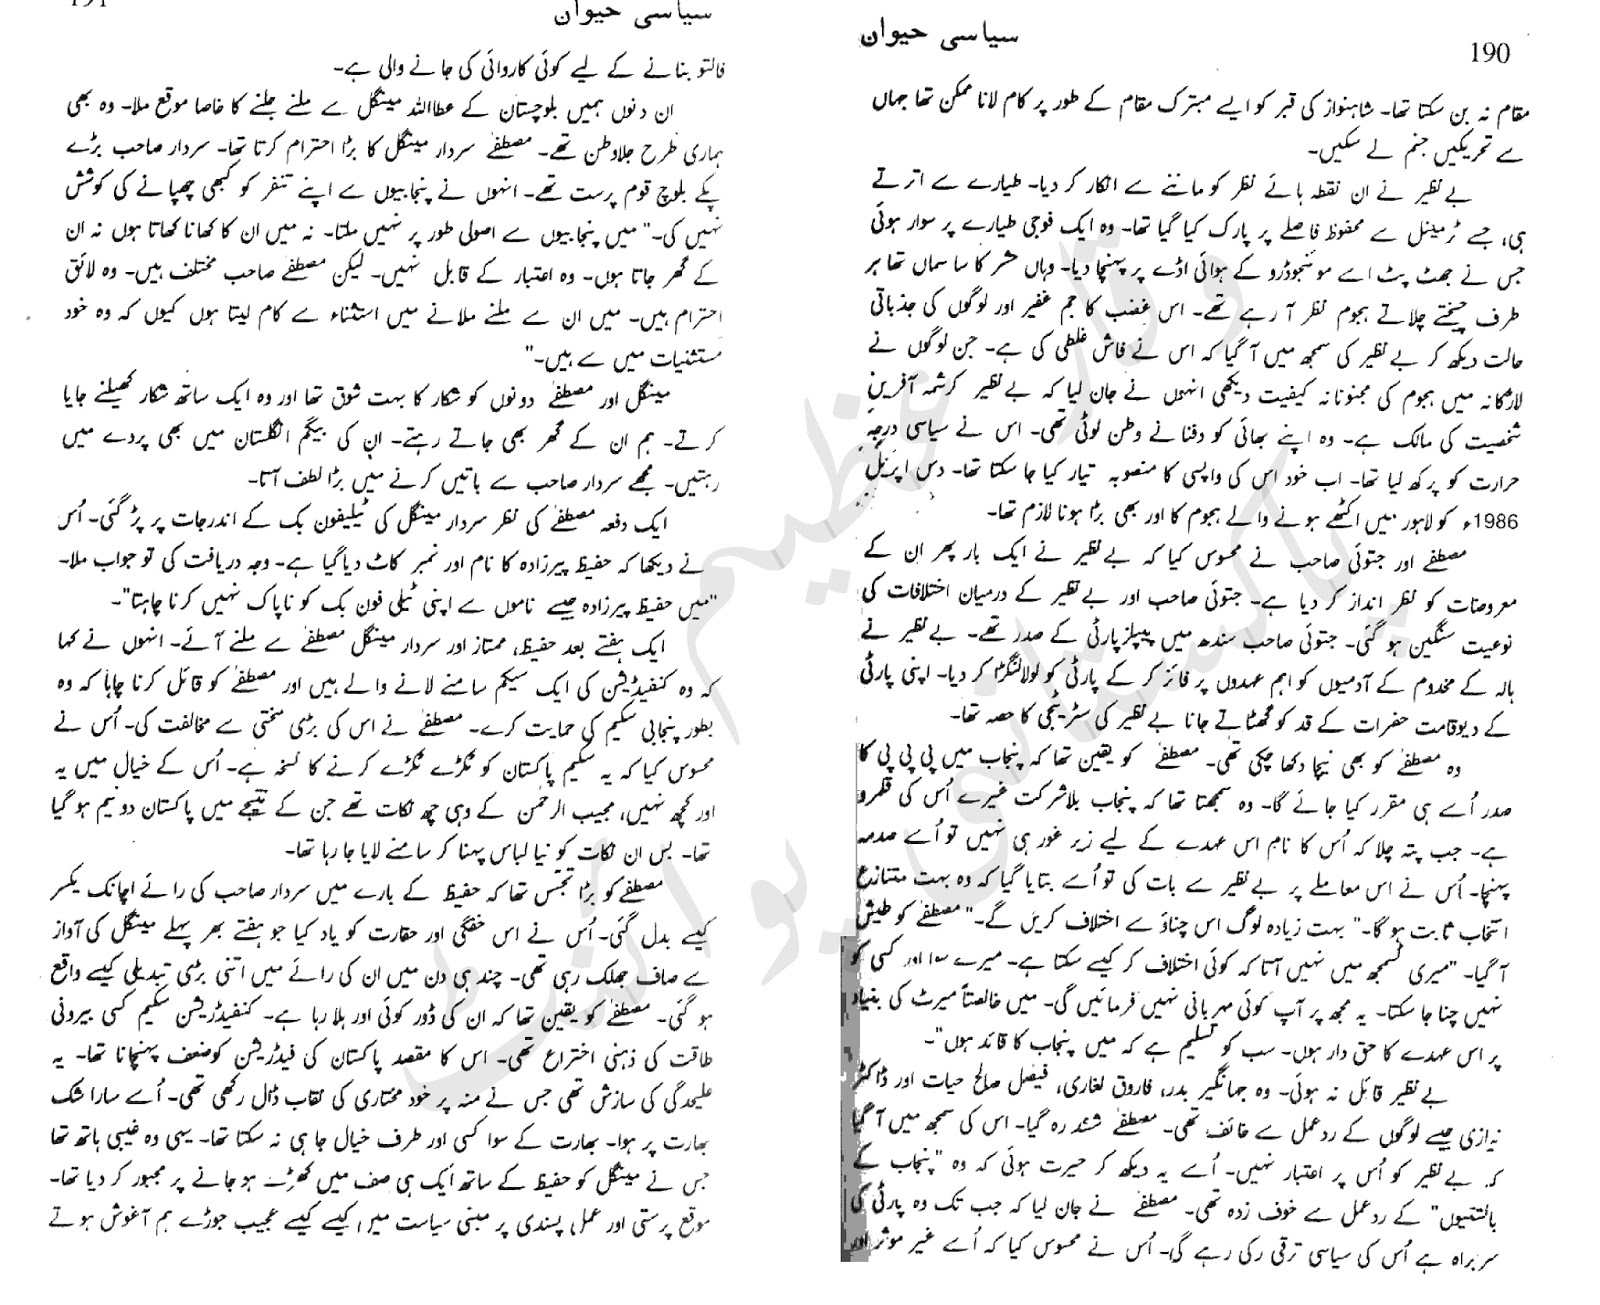 190
سیاسی حیوان
مقام نہ بن سکتا تھا۔ شاہنواز کی قبر کو ایسے مبترک مقام کے طور پر کام لانا ممکن تھا جہاں
سے تحریکیں جنم لے سکیں۔
بے نظیر نے ان نقطہ ہائے نظر کو ماننے سے انکار کر دیا۔ طیارے سے اترتے
ہی، جسے ٹرمینل سے محفوظ فاصلے پر پارک کیا گیا تھا۔ وہ ایک فوجی طیارے پر سوار ہوئی
جس نے جھٹ پٹ اسے موئنجوڈرو کے ہوائی اڈے پر پہنچا دیا۔ وہاں حشر کا سا سماں تھا ہر
طرف چیختے چلاتے ہجوم نظر آ رہے تھے۔ اس غضب کا جم غفیر اور لوگوں کی جذباتی
حالت دیکھ کر بے نظیر کی سمجھ میں آ گیا کہ اس نے فاش غلطی کی ہے۔ جن لوگوں نے
لاڑکانہ میں ہجوم کی مجنونانہ کیفیت دیکھی انہوں نے جان لیا کہ بے نظیر کرشمہ آفریں
شخصیت کی مالک ہے۔ وہ اپنے بھائی کو دفنانے وطن لوٹی تھی۔ اس نے سیاسی درجہ
حرارت کو پرکھ لیا تھا۔ اب خود اس کی واپسی کا منصوبہ تیار کیا جا سکتا تھا۔ دس اپریل
1986ء کو لاہور میں اکٹھے ہونے والے ہجوم کا اور بھی بڑا ہونا لازم تھا۔
مصطفےٰ اور جتوئی صاحب نے محسوس کیا کہ بے نظیر نے ایک بار پھر ان کے
معروضات کو نظر انداز کر دیا ہے۔ جتوئی صاحب اور بے نظیر کے درمیان اختلافات کی
نوعیت سنگین ہو گئی۔ جتوئی صاحب سندھ میں پیپلز پارٹی کے صدر تھے۔ بے نظیر نے
ہالہ کے مخدوم کے آدمیوں کو اہم عہدوں پر فائز کر کے پارٹی کو لولا لنگڑا کر دیا۔ اپنی پارٹی
کے دیوقامت حضرات کے قد کو گھٹاتے جانا بے نظیر کی سٹریٹجی کا حصہ تھا۔
وہ مصطفےٰ کو بھی نیچا دکھا چکی تھی۔ مصطفےٰ کو یقین تھا کہ پنجاب میں پی پی پی کا
صدر اُسے ہی مقرر کیا جائے گا۔ وہ سمجھتا تھا کہ پنجاب بلاشرکت غیرے اُس کی قلمرو
ہے۔ جب پتہ چلا کہ اُس کا نام اس عہدے کے لیے زیر غور ہی نہیں تو اُسے صدمہ
پہنچا۔ اُس نے اس معاملے پر بے نظیر سے بات کی تو اُسے بتایا گیا کہ وہ بہت متنازع
انتخاب ثابت ہو گا۔" بہت زیادہ لوگ اس چناؤ سے اختلاف کریں گے۔" مصطفےٰ کو طیش
آ گیا۔ "میری سمجھ میں نہیں آتا کہ کوئی اختلاف کر کیسے سکتا ہے۔ میرے سوا اور کسی کو
نہیں چنا جا سکتا۔ یہ مجھ پر آپ کوئی مہربانی نہیں فرمائیں گی۔ میں خالصتاً میرٹ کی بنیاد
پر اس عہدے کا حق دار ہوں۔ سب کو تسلیم ہے کہ میں پنجاب کا قائد ہوں"۔
بے نظیر قائل نہ ہوئی۔ وہ جہانگیر بدر، فاروق لغاری، فیصل صالح حیات اور ڈاکٹر
نیازی جیسے لوگوں کے ردعمل سے خائف تھی۔ مصطفےٰ ششدر رہ گیا۔ اس کی سمجھ میں آ گیا
کہ بے نظیر کو اُس پر اعتبار نہیں۔ اُسے یہ دیکھ کر حیرت ہوئی کہ وہ "پنجاب کے
بالشتیوں" کے ردعمل سے خوف زدہ تھی۔ مصطفےٰ نے جان لیا کہ جب تک وہ پارٹی کی
سربراہ ہے اُس کی سیاسی ترقی رکی رہے گی۔ اُس نے محسوس کیا کہ اُسے غیر موثر اور
191
سیاسی حیوان
فالتو بنانے کے لیے کوئی کاروائی کی جانے والی ہے۔
ان دنوں ہمیں بلوچستان کے عطااللہ مینگل سے ملنے جلنے کا خاصا موقع ملا۔ وہ بھی
ہماری طرح جلاوطن تھے۔ مصطفےٰ سردار مینگل کا بڑا احترام کرتا تھا۔ سردار صاحب بڑے
پکے بلوچ قوم پرست تھے۔ انہوں نے پنجابیوں سے اپنے تنفر کو کبھی چھپانے کی کوشش
نہیں کی۔" میں پنجابیوں سے اصولی طور پر نہیں ملتا۔ نہ میں ان کا کھانا کھاتا ہوں نہ ان
کے گھر جاتا ہوں۔ وہ اعتبار کے قابل نہیں۔ لیکن مصطفےٰ صاحب مختلف ہیں۔ وہ لائق
احترام ہیں۔ میں ان سے ملنے ملانے میں استثناء سے کام لیتا ہوں کیوں کہ وہ خود
مستثنیات میں سے ہیں۔"
مینگل اور مصطفےٰ دونوں کو شکار کا بہت شوق تھا اور وہ ایک ساتھ شکار کھیلنے جایا
کرتے۔ ہم ان کے گھر بھی جاتے رہتے۔ ان کی بیگم انگلستان میں بھی پردے میں
رہتیں۔ مجھے سردار صاحب سے باتیں کرنے میں بڑا لطف آتا۔
ایک دفعہ مصطفےٰ کی نظر سردار مینگل کی ٹیلیفون بک کے اندرجات پر پڑ گئی۔ اُس
نے دیکھا کہ حفیظ پیرزادہ کا نام اور نمبر کاٹ دیا گیا ہے۔ وجہ دریافت کی تو جواب ملا۔
"میں حفیظ پیرزادہ جیسے ناموں سے اپنی ٹیلی فون بک کو ناپاک نہیں کرنا چاہتا"۔
ایک ہفتے بعد حفیظ، ممتاز اور سردار مینگل مصطفےٰ سے ملنے آئے۔ انہوں نے کہا
کہ وہ کنفیڈریشن کی ایک سیکم سامنے لانے والے ہیں اور مصطفےٰ کو قائل کرنا چاہا کہ وہ
بطور پنجابی سکیم کی حمایت کرے۔ مصطفےٰ نے اس کی بڑی سختی سے مخالفت کی۔ اُس نے
محسوس کیا کہ یہ سکیم پاکستان کو ٹکڑے ٹکڑے کرنے کا نسخہ ہے۔ اُس کے خیال میں یہ
اور کچھ نہیں، مجیب الرحمن کے وہی چھ نکات تھے جن کے نتیجے میں پاکستان دو نیم ہو گیا
تھا۔ بس ان نکات کو نیا لباس پہنا کر سامنے لایا جا رہا تھا۔
مصطفےٰ کو بڑا تجسس تھا کہ حفیظ کے بارے میں سردار صاحب کی رائے اچانک یکسر
کیسے بدل گئی۔ اُس نے اس خفگی اور حقارت کو یاد کیا جو ہفتے بھر پہلے مینگل کی آواز
سے صاف جھلک رہی تھی۔ چند ہی دن میں ان کی رائے میں اتنی بڑی تبدیلی کیسے واقع
ہو گئی۔ مصطفےٰ کو یقین تھا کہ ان کی ڈور کوئی اور ہلا رہا ہے۔ کنفیڈریشن سکیم کسی بیرونی
طاقت کی ذہنی اختراع تھی۔ اس کا مقصد پاکستان کی فیڈریشن کو ضعف پہنچانا تھا۔ یہ
علیحدگی کی سازش تھی جس نے منہ پر خود مختاری کی نقاب ڈال رکھی تھی۔ اُسے سارا شک
بھارت پر ہوا۔ بھارت کے سوا کسی اور طرف خیال جا ہی نہ سکتا تھا۔ یہی وہ غیبی ہاتھ تھا
جس نے مینگل کو حفیظ کے ساتھ ایک ہی صف میں کھڑے ہو جانے پر مجبور کر دیا تھا۔
موقع پرستی اور عمل پسندی پر مبنی سیاست میں کیسے کیسے عجیب جوڑے ہم آغوش ہوتے
پاکستانی پوائنٹ
وقار عظیم